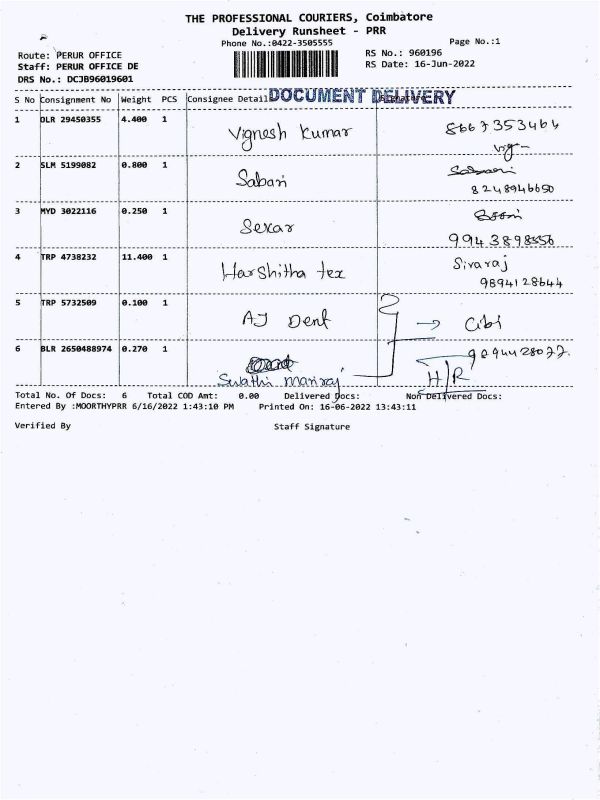 THE PROFESSIONAL COURIERS, Coimbatore
Delivery Runsheet - PRR
Phone No.:0422-3505555
Page No.:1
Route: PERUR OFFICE
RS No.: 960196
Staff: PERUR OFFICE DE
RS Date: 16-Jun-2022
DRS No.: DCJB96019601
S No Consignment No Weight PCS Consignee Detail DOCUMENT DELIVERY
1 DLR 29450355 4.400 1 Vignesh Kumar 8667353464
2 SLM 5199082 0.800 1 Sabari
8248946650
3 MYD 3022116 0.250 1 Sekar
9943898556
4 TRP 4738232 11.400 1 Harshitha tex Sivaraj
9894128644
5 TRP 5732509 0.100 1 AJ Dent → Cibi
6 BLR 2650488974 0.270 1
Swathi maniraj H/R
Total No. Of Docs: 6 Total COD Amt: 0.00 Delivered Docs: Non Delivered Docs:
Entered By :MOORTHYPRR 6/16/2022 1:43:10 PM Printed On: 16-06-2022 13:43:11
Verified By Staff Signature